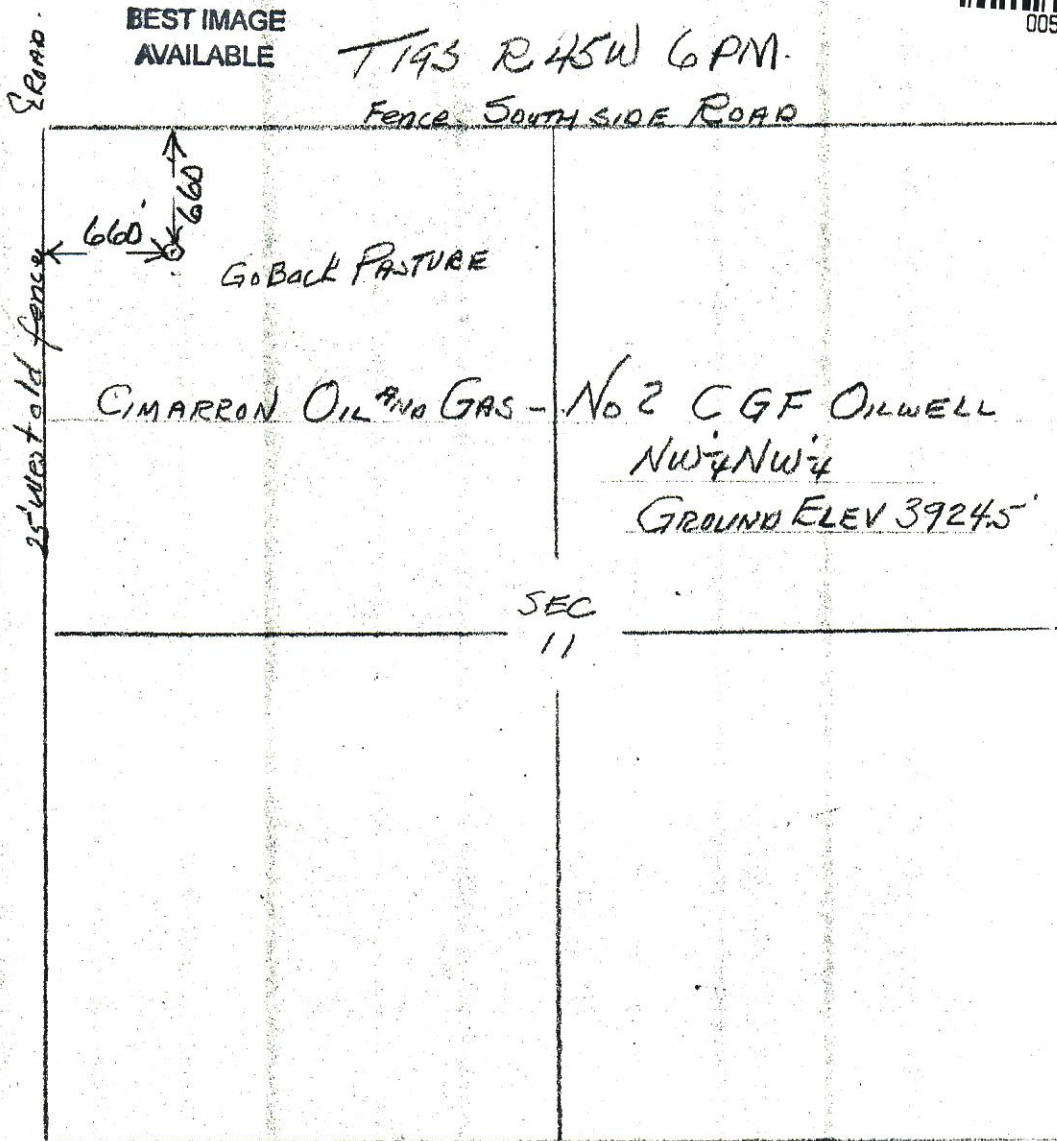 BEST IMAGE
AVAILABLE
005
T19S R45W 6 PM.
Fence South SIDE ROAD
℄ ROAD.
660'
660'
GoBack PASTURE
25' West old fence
CIMARRON OIL AND GAS - No 2 CGF OILWELL
NW¼NW¼
GROUND ELEV 3924.5'
SEC
11